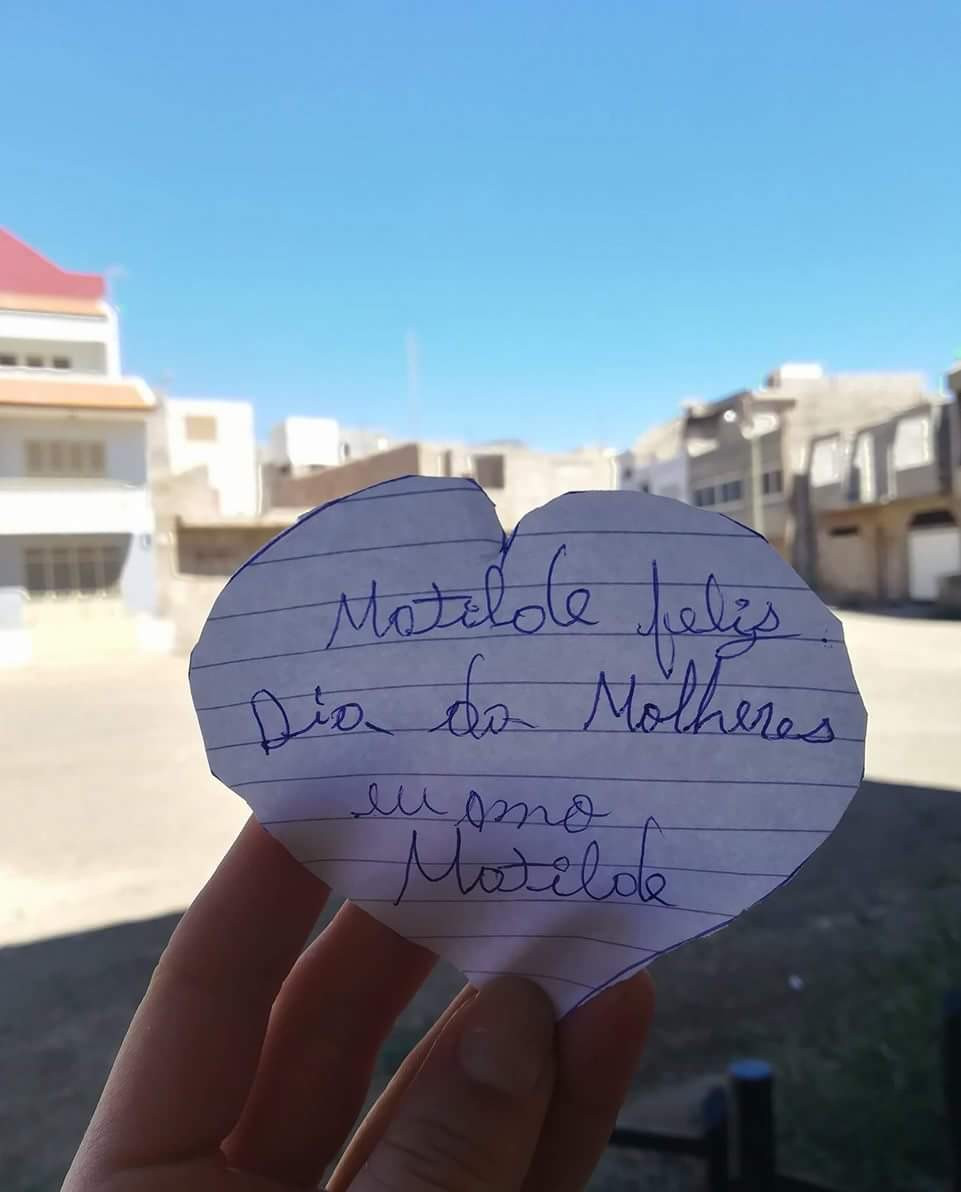 Matilde felis
Dia da Molheres
eu amo
Matilde